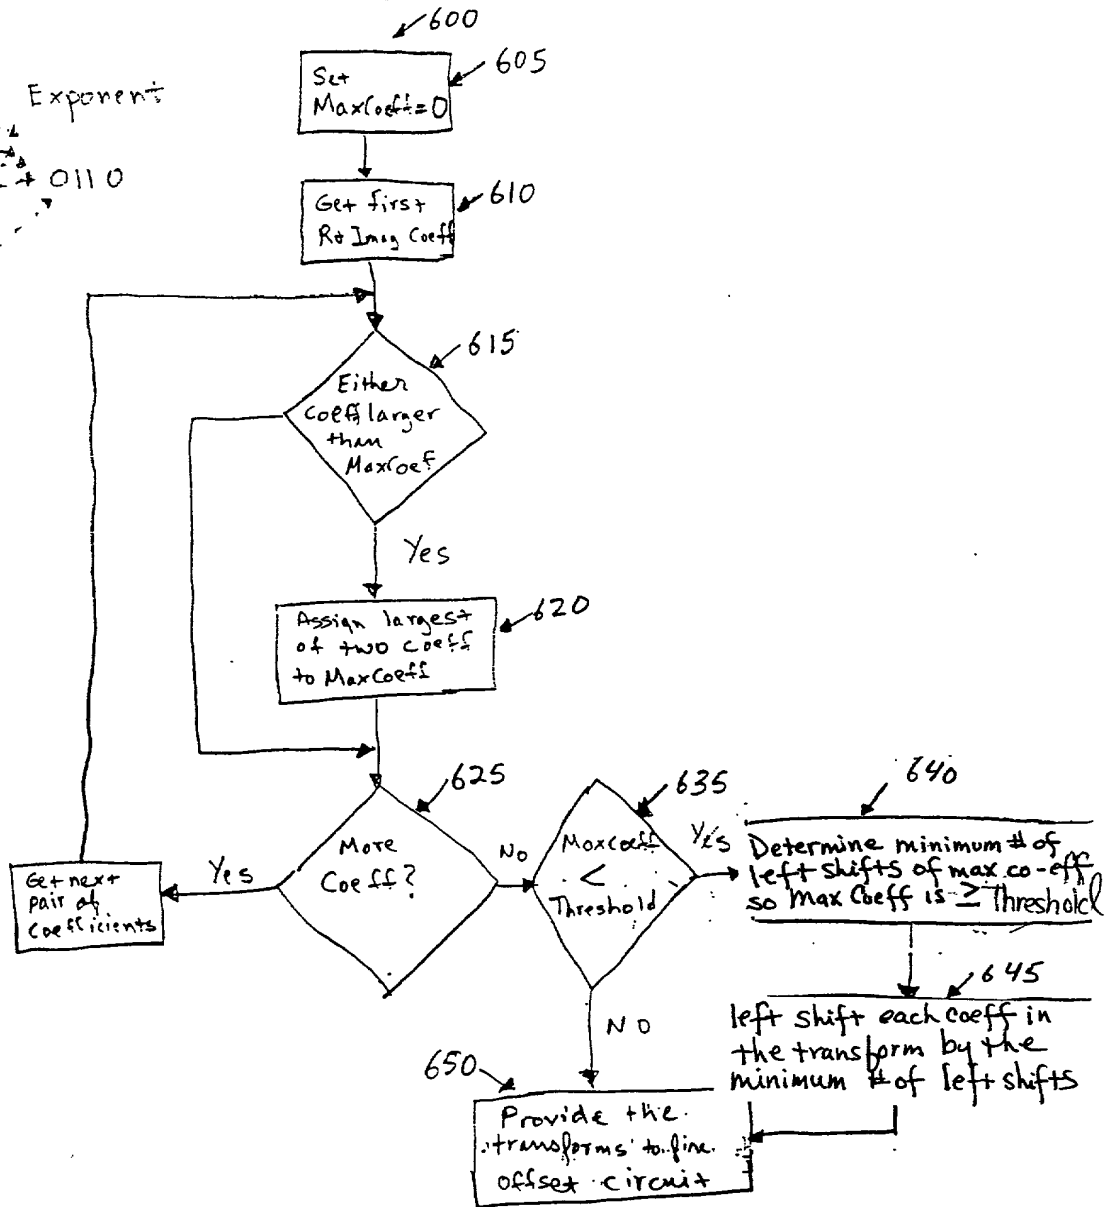 600
605
Set
MaxCoeff=0
Exponent
0110
610
Get first
R+ Imag Coeff
615
Either
Coeff larger
than
MaxCoef
Yes
Assign largest
of two coeff
to MaxCoeff
620
625
More
Coeff?
Yes
Get next
pair of
coefficients
No
635
Maxcoeff
<
Threshold
Yes
640
Determine minimum # of
left shifts of max co-eff
so max Coeff is ≥ Threshold
645
left shift each coeff in
the transform by the
minimum # of left shifts
NO
650
Provide the
transforms to fine
offset circuit